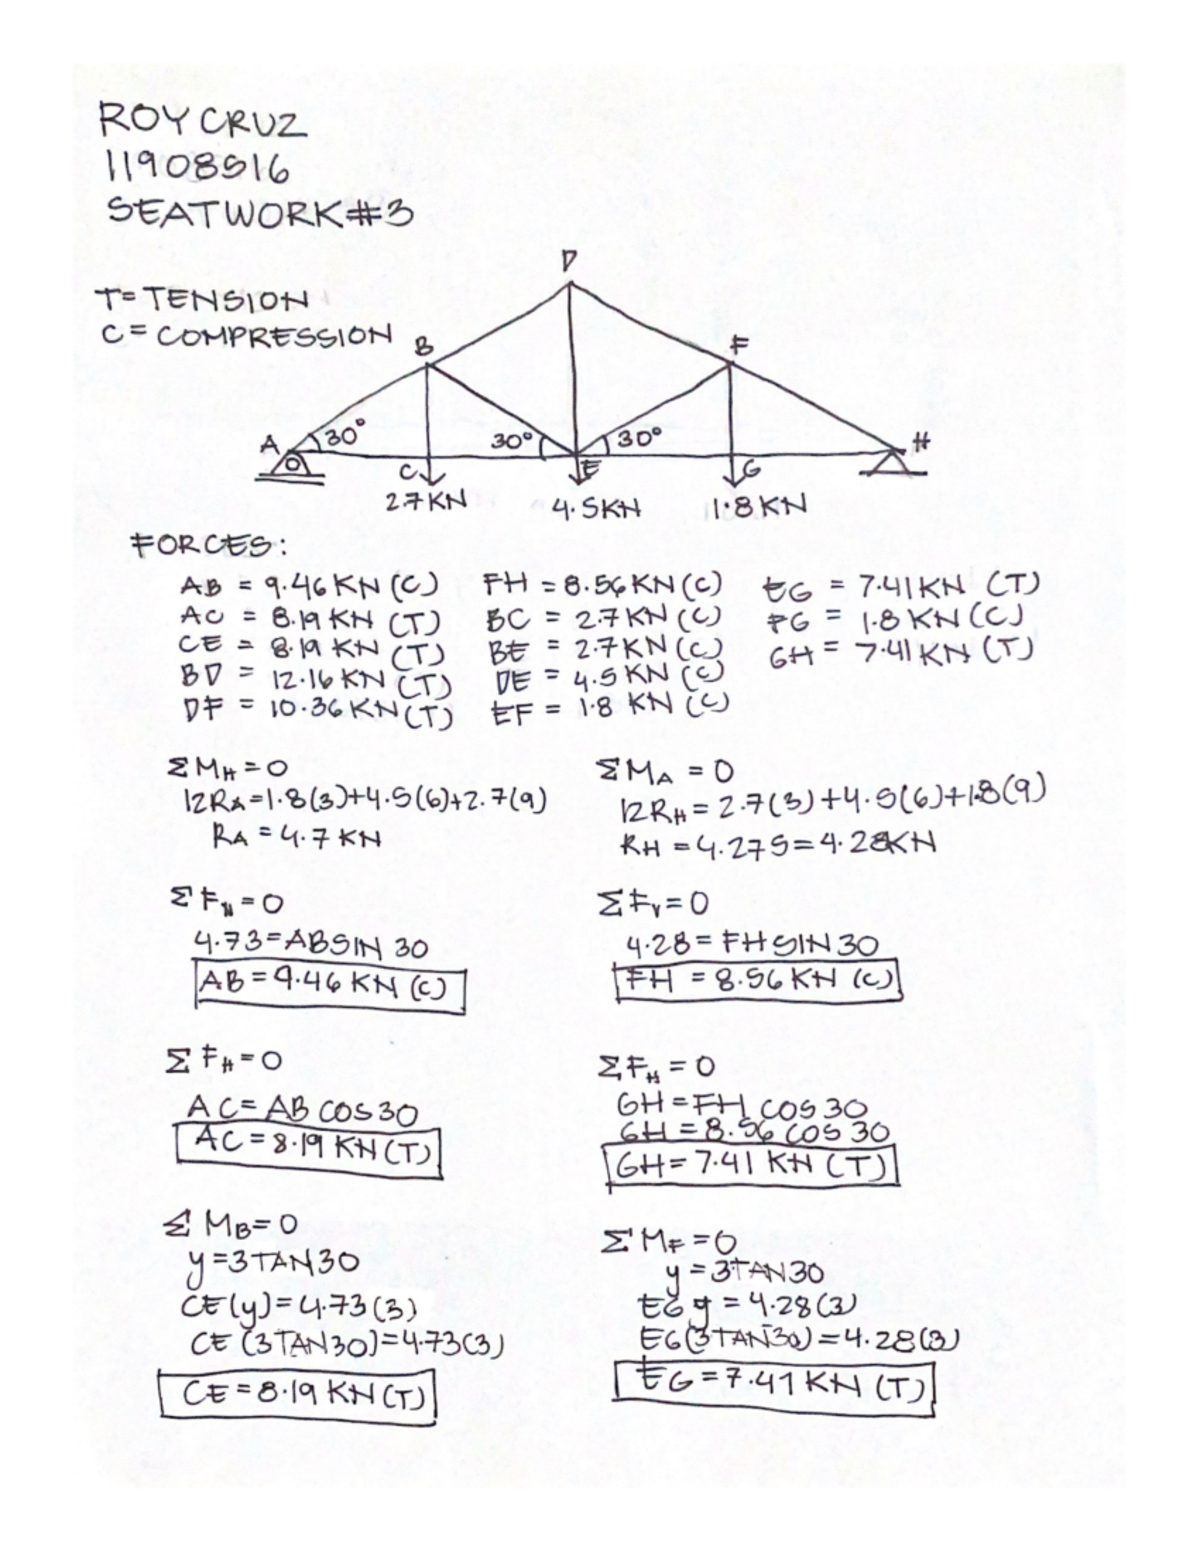 ROY CRUZ
11908516
SEATWORK #3
T= TENSION
C= COMPRESSION
D
B
F
A
30°
30°
30°
H
C
E
G
2.7 KN
4.5KN
1.8 KN
FORCES:
AB = 9.46 KN (C) FH = 8.56 KN (C) EG = 7.41 KN (T)
AC = 8.19 KN (T) BC = 2.7 KN (C) FG = 1.8 KN (C)
CE = 8.19 KN (T) BE = 2.7 KN (C) GH = 7.41 KN (T)
BD = 12.16 KN (T) DE = 4.5 KN (C)
DF = 10.36 KN (T) EF = 1.8 KN (C)
ΣMH = 0
12RA = 1.8(3)+4.5(6)+2.7(9)
RA = 4.7 KN
ΣFH = 0
4.73 = AB SIN 30
AB = 9.46 KN (C)
ΣFH = 0
AC = AB COS 30
AC = 8.19 KN (T)
ΣMB = 0
y = 3 TAN 30
CE (y) = 4.73 (3)
CE (3 TAN 30) = 4.73 (3)
CE = 8.19 KN (T)
ΣMA = 0
12RH = 2.7(3)+4.5(6)+1.8(9)
RH = 4.275 = 4.28KN
ΣFV = 0
4.28 = FH SIN 30
FH = 8.56 KN (C)
ΣFH = 0
GH = FH COS 30
GH = 8.56 COS 30
GH = 7.41 KN (T)
ΣMF = 0
y = 3 TAN 30
EG y = 4.28 (3)
EG (3 TAN 30) = 4.28 (3)
EG = 7.41 KN (T)